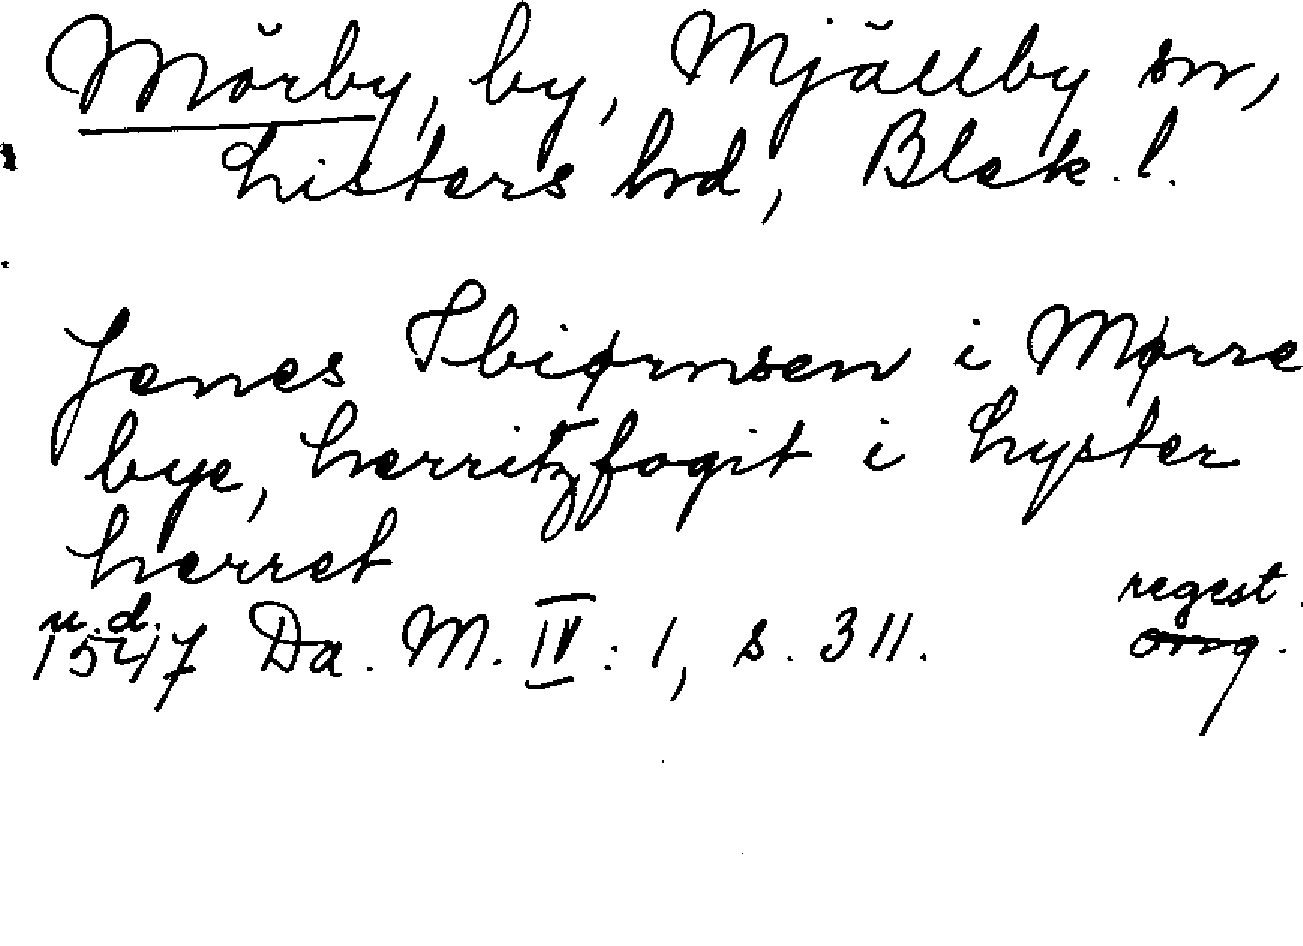 Mörby, by, Mjällby sn,
Listers hrd, Blek. l.
Jenes Ibiørnsen i Mørre
bye, herritzfogit i Lyster
herret
u. d. regest.
1547 Da. M. IV: 1, s. 311. orig.